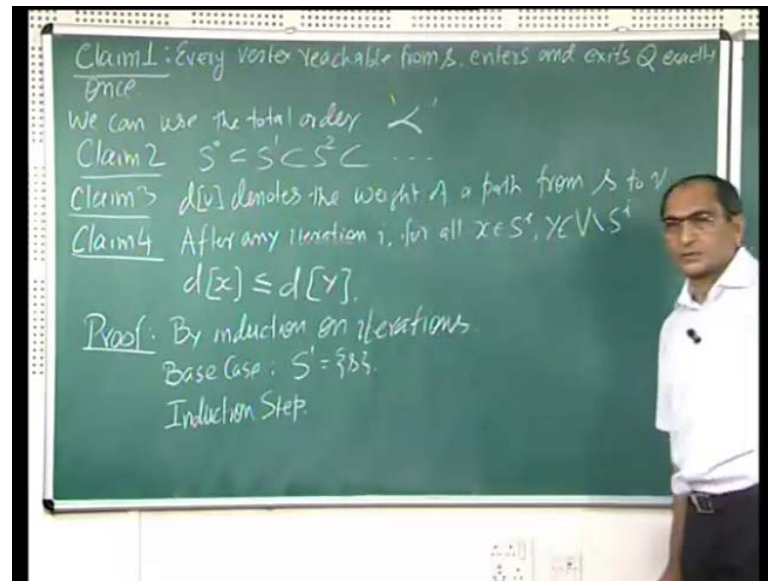 Claim1: Every vertex reachable from s, enters and exits Q exactly
once.
We can use the total order '≺'
Claim2 S⁰ ⊂ S¹ ⊂ S² ⊂ ...
Claim3 d[v] denotes the weight of a path from s to v.
Claim4 After any iteration i, for all x∈Sⁱ, y∈V\Sⁱ
d[x] ≤ d[y].
Proof: By induction on iterations.
Base Case: S¹ = {s}.
Induction Step.